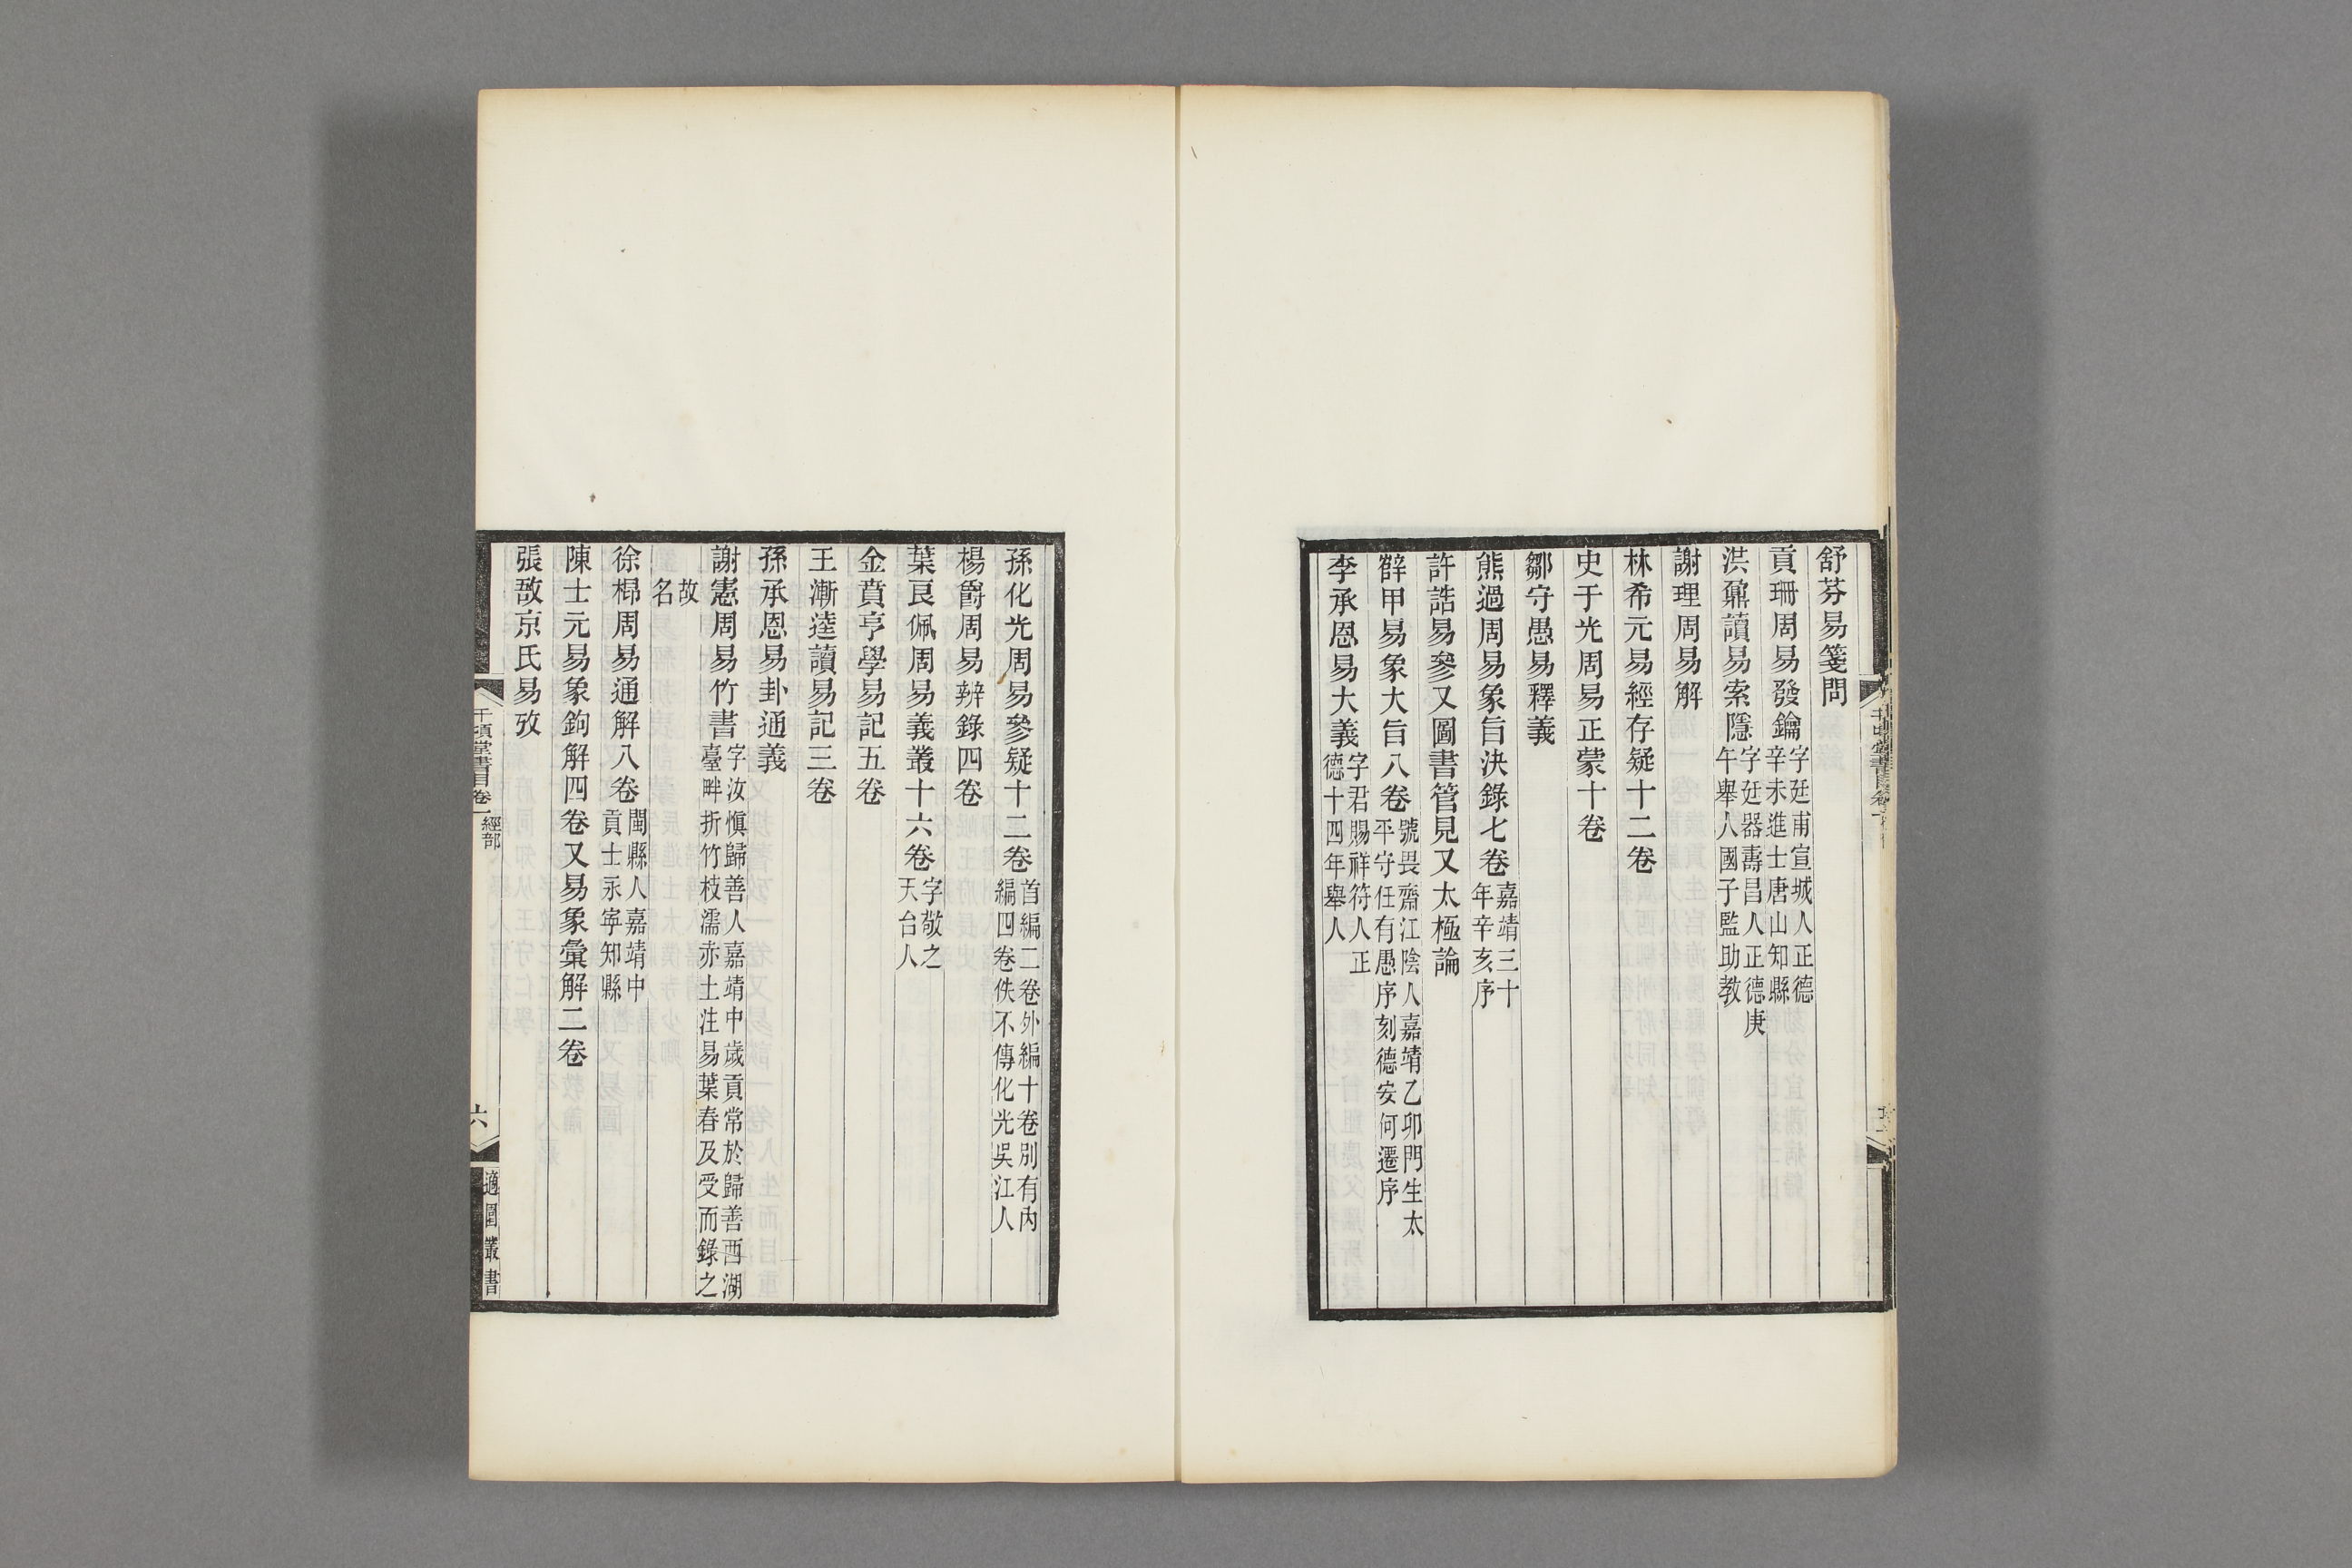 舒芬易箋問
貢珊周易發鑰字廷甫宣城人正德辛未進士唐山知縣
洪鼐讀易索隱字廷器壽昌人正德庚午舉人國子監助教
謝理周易解
林希元易經存疑十二卷
史于光周易正蒙十卷
鄒守愚易釋義
熊過周易象旨決錄七卷嘉靖三十年辛亥序
許誥易參又圖書管見又太極論
薛甲易象大旨八卷號畏齋江陰人嘉靖乙卯門生太平守任有愚序刻德安何遷序
李承恩易大義字君賜祥符人正德十四年舉人
孫化光周易參疑十二卷首編二卷外編十卷別有內編四卷佚不傳化光吳江人
楊爵周易辨錄四卷
葉良佩周易義叢十六卷字敬之天台人
金賁亨學易記五卷
王漸逵讀易記三卷
孫承恩易卦通義
謝憲周易竹書字汝愼歸善人嘉靖中歲貢常於歸善西湖臺畔折竹枝濡赤土注易葉春及受而錄之
故名
徐㮮周易通解八卷閩縣人嘉靖中貢士永寧知縣
陳士元易象鉤解四卷又易象彙解二卷
張敔京氏易攷
千頃堂書目卷一 經部
六
適園叢書